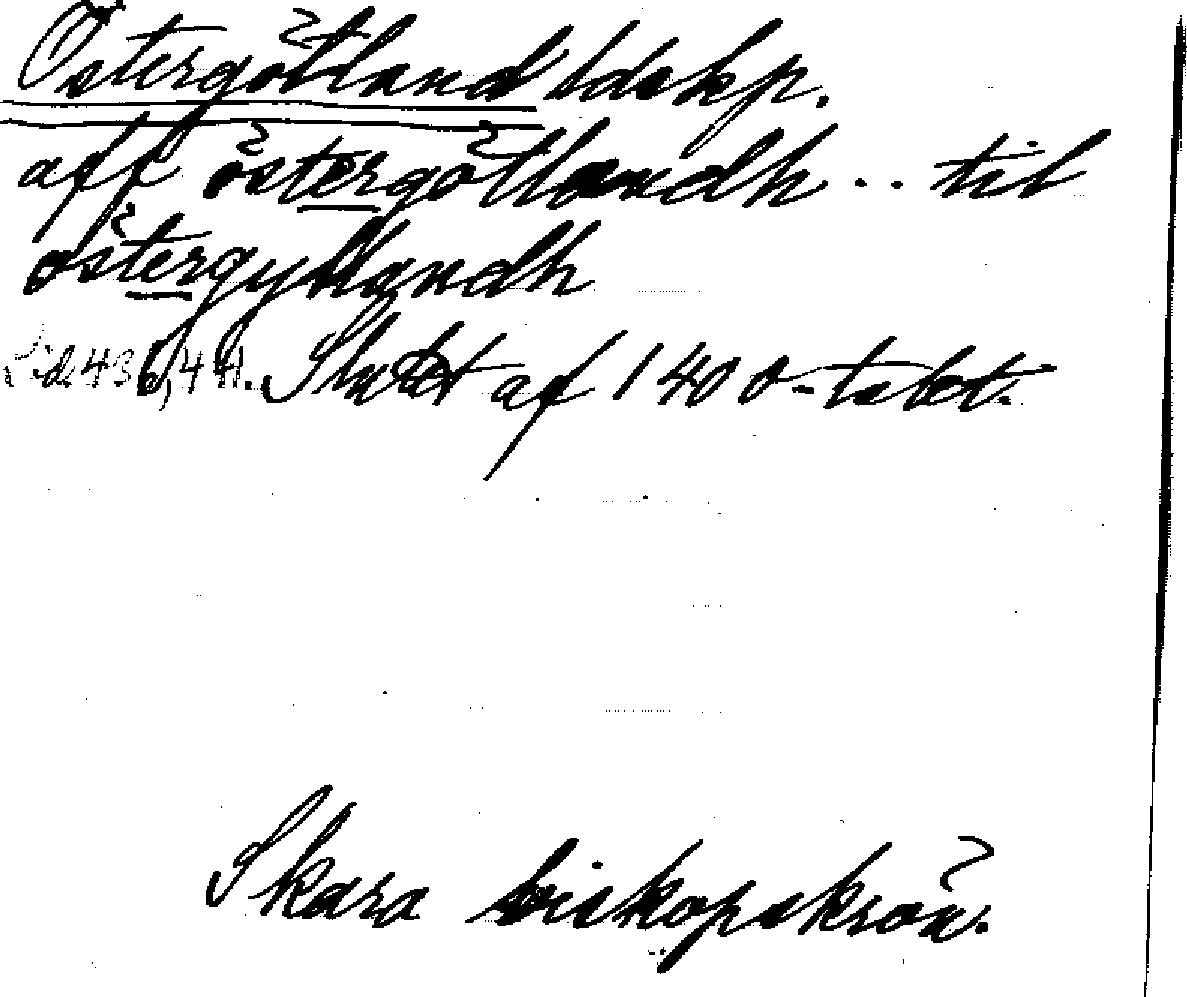 Östergötland ldskp.
aff östergötlandh .. til
östergyllandh
Sid. 436, 441. Slutet af 1400-talet.
Skara biskopskrön.